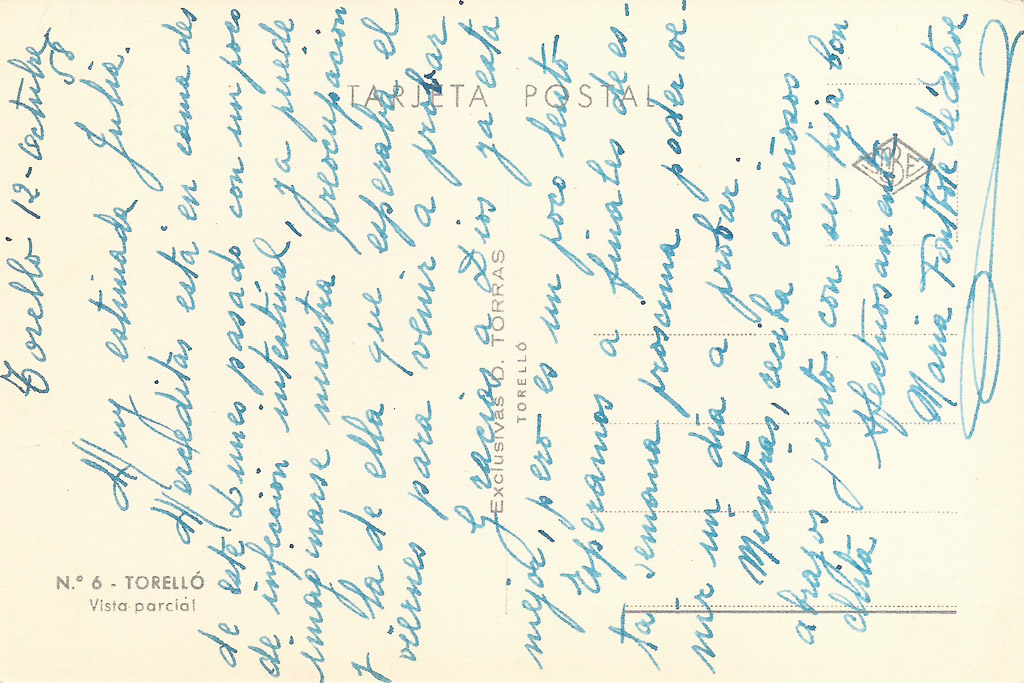 Torelló 12-octubre
58
Muy estimada Julia.
Merceditas está en cama des
de este Lunes pasado con un poco
de infección intestinal, ya puede
imaginarse nuestra preocupación
y la de ella que esperaba el
viernes para venir a probar.
Gracias a Dios ya está
mejor, pero es un poco lento
Esperamos a finales de es-
ta semana prosima poder ve-
nir un día a probar.
Mientras, reciba cariñosos
abrazos junto con su hija Con
chita
Afectuosamente
Maria Fontbote de Esteve
TARJETA POSTAL
Exclusivas D. TORRAS
TORELLÓ
N.º 6 - TORELLÓ
Vista parcial